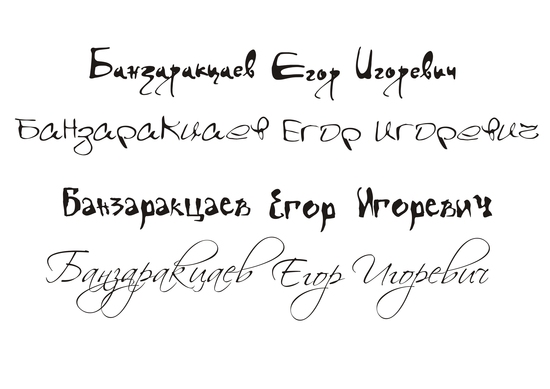 Банзаракцаев Егор Игоревич
Банзаракцаев Егор Игоревич
Банзаракцаев Егор Игоревич
Банзаракцаев Егор Игоревич